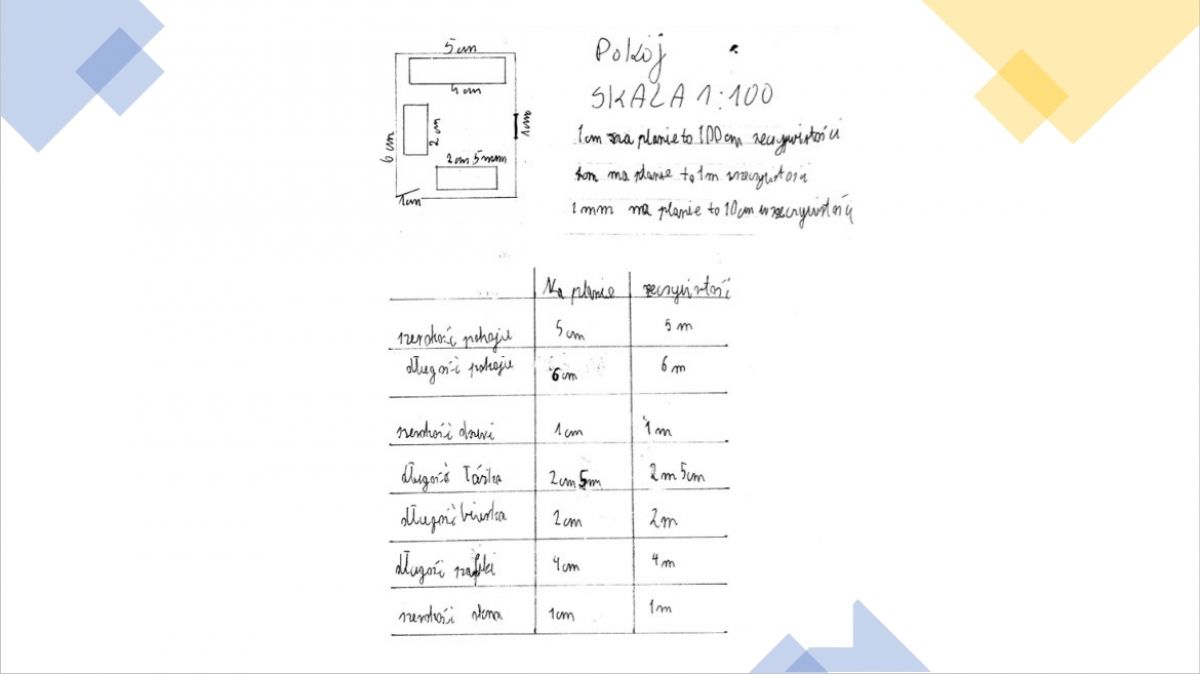 5cm
4cm
6cm
2cm
1cm
2cm 5mm
1cm
Pokój
SKALA 1:100
1cm na planie to 100cm rzeczywistości
1cm na planie to 1m w rzeczywistości
1mm na planie to 10cm w rzeczywistości
Na planie rzeczywistość
szerokość pokoju 5cm 5m
długość pokoju 6cm 6m
szerokość drzwi 1cm 1m
długość łóżka 2cm 5m 2m 5cm
długość biurka 2cm 2m
długość szafki 4cm 4m
szerokość okna 1cm 1m